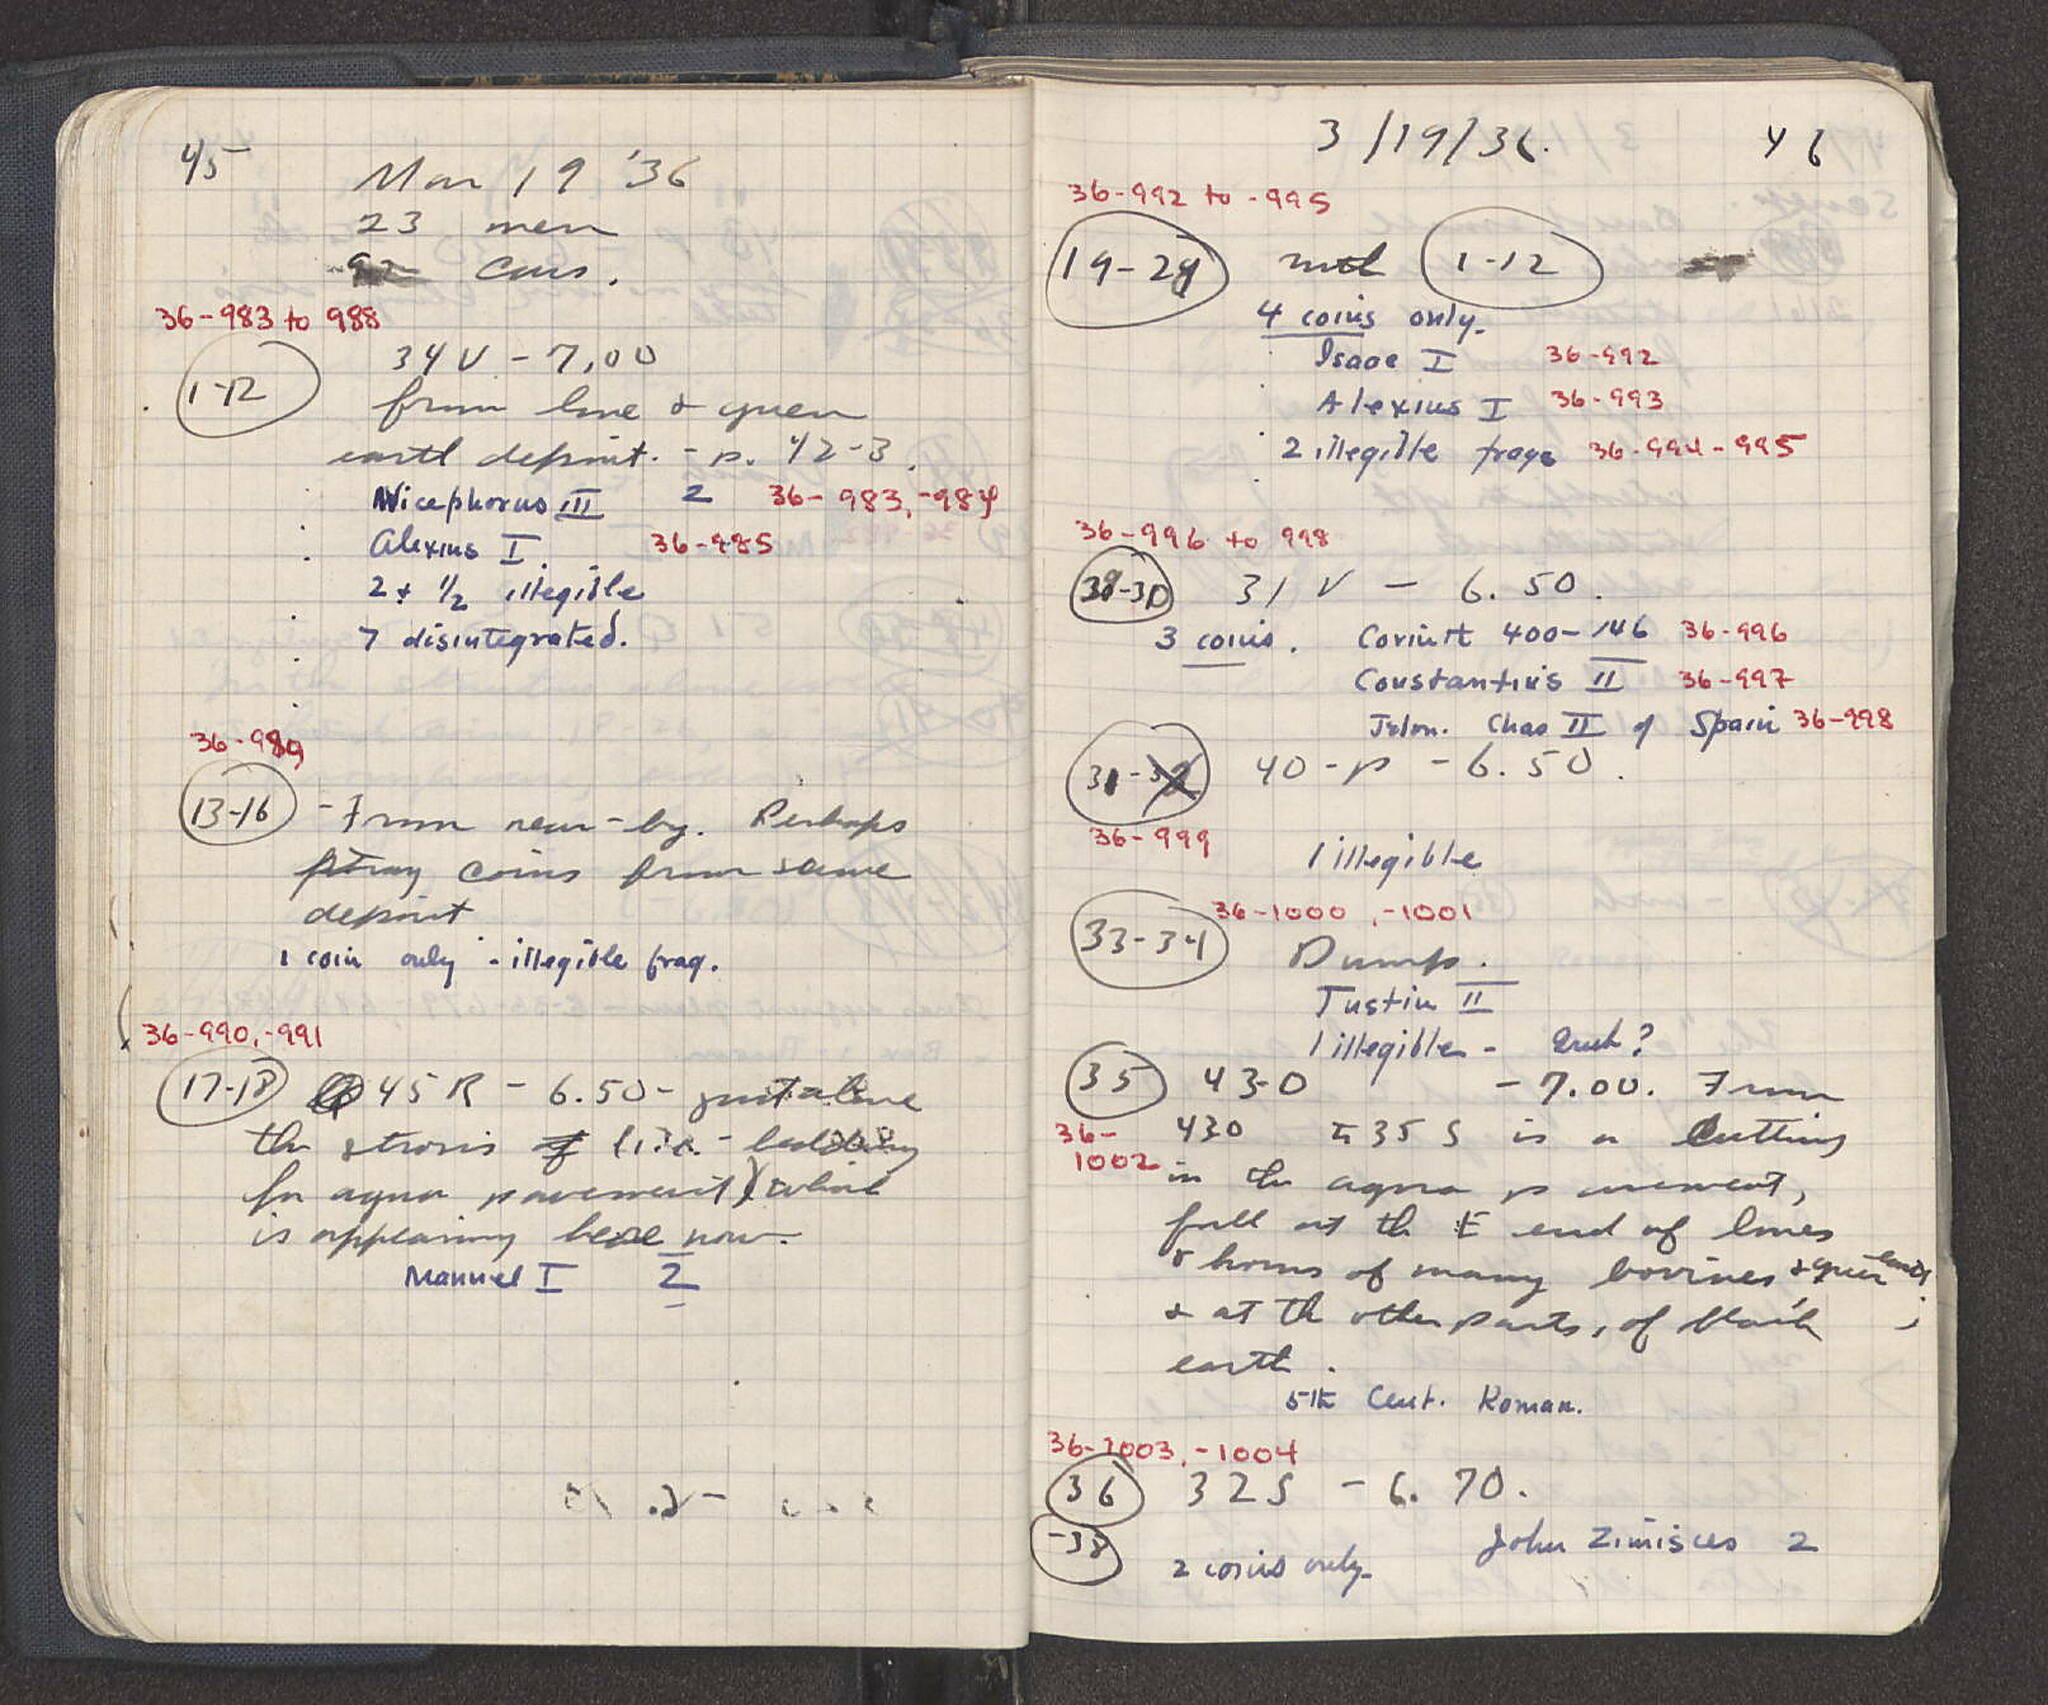 45
Mar 19 '36
23 men
cars.
36-983 to 988
1-12
34V - 7.00
from lime & green
earth deposit. - p. 42-3.
Nicephorus III 2 36-983, -984
Alexius I 36-985
2 + 1/2 illegible
7 disintegrated.
36-989
13-16 - From near-by. Perhaps
stray coins from same
deposit
1 coin only - illegible frag.
36-990, -991
17-18 45 R - 6.50 - just above
the strosis of
for agora pavement) which
is appearing here now.
Manuel I 2
3/19/36. 46
36-992 to -995
19-24 with 1-12
4 coins only.
Isaac I 36-992
Alexius I 36-993
2 illegible frags 36-994-995
36-996 to 998
28-30 31 V - 6.50.
3 coins. Corinth 400-146 36-996
Constantius II 36-997
Chas II of Spain 36-998
31-32 40-P - 6.50.
36-999 1 illegible
36-1000, -1001
33-34 Dump.
Justin II
1 illegible -
35 43-O - 7.00. From
36-1002
43O to 35 S is a cutting
in the agora pavement,
full at the E end of bones
& horns of many bovines & green earth,
& at the other parts, of black
earth.
5th Cent. Roman.
36-1003, -1004
36 32S - 6.70.
-38
2 coins only. John Zimisces 2